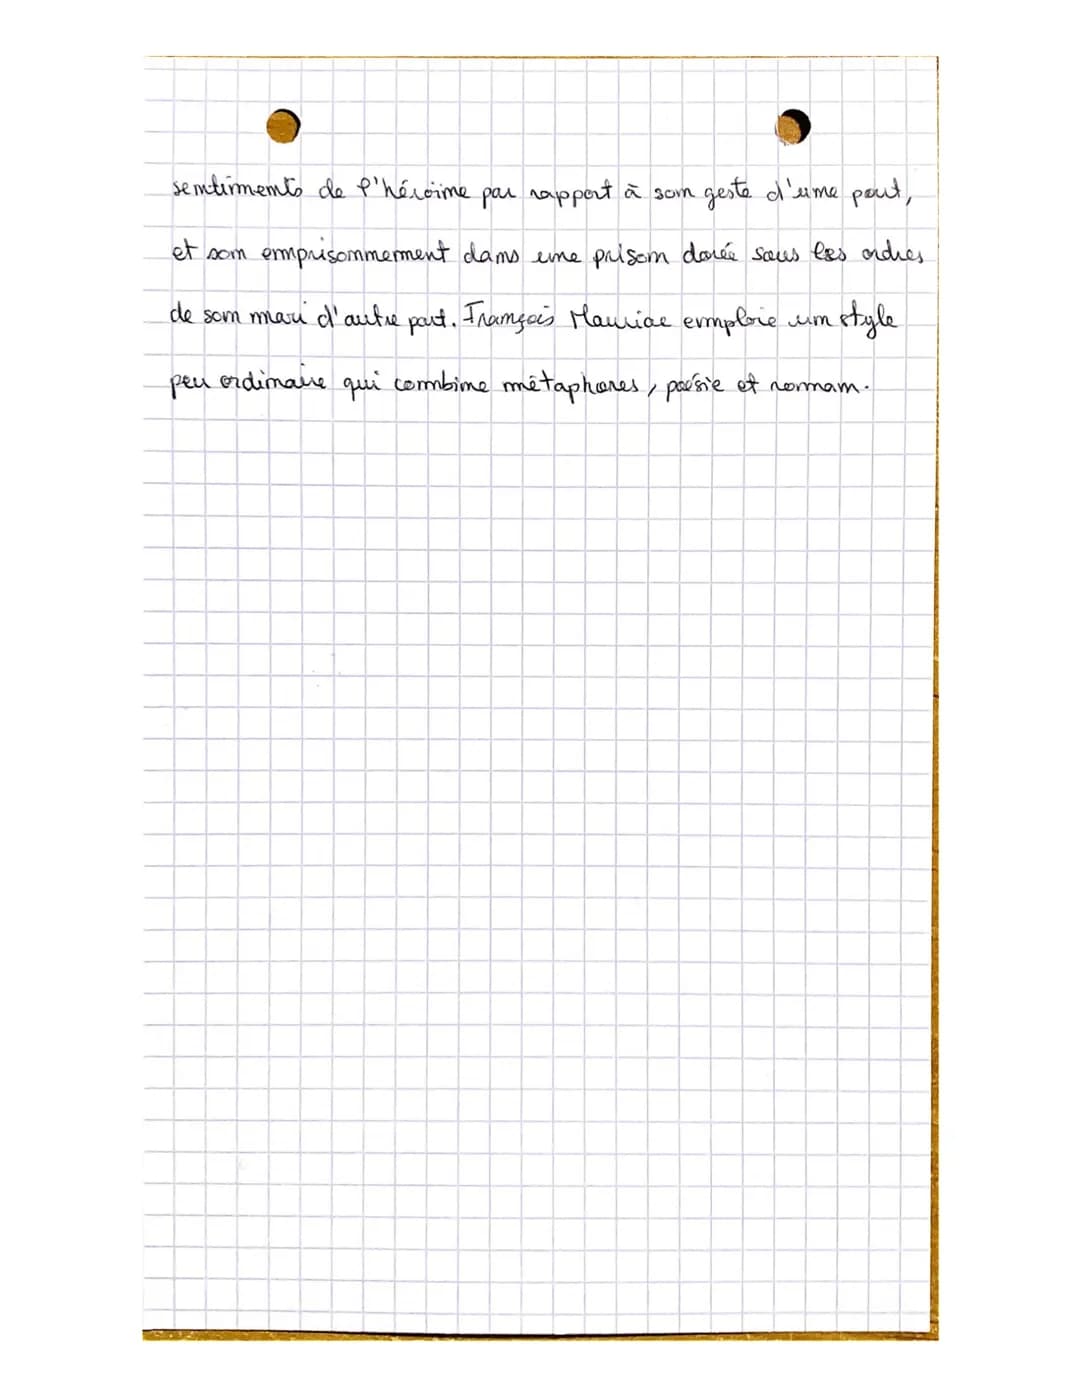 sentiments de l'héroïne par rapport à son geste d'une part,
et son emprisonnement dans une prison dorée sous les ordres
de son mari d'autre part. François Mauriac emploie un style
peu ordinaire qui combine métaphores, poésie et roman.